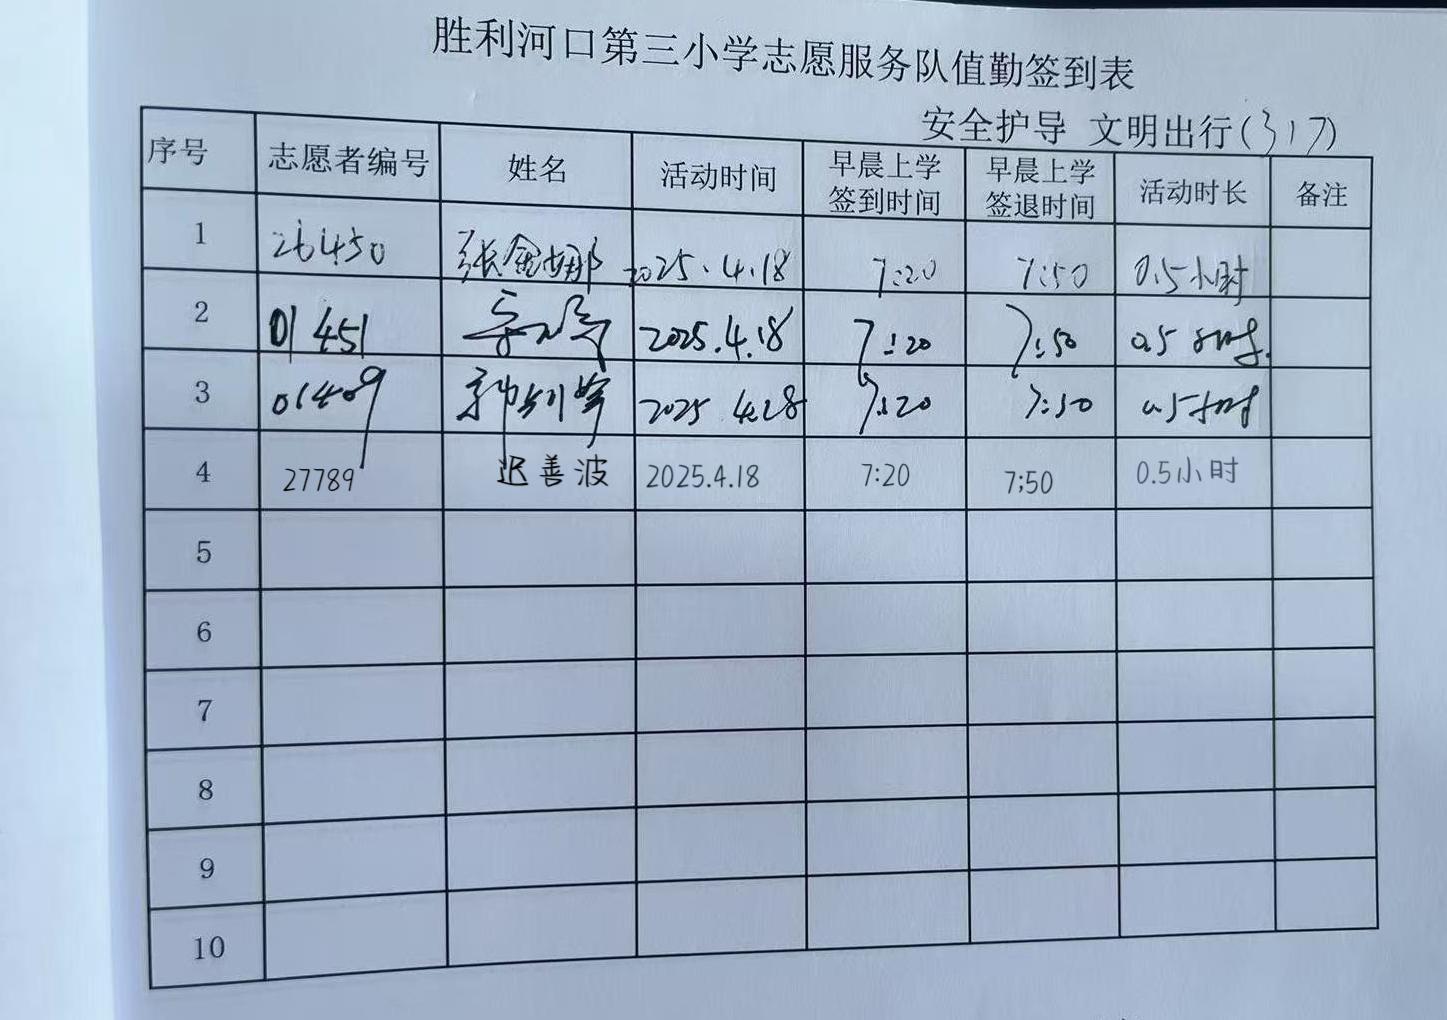 胜利河口第三小学志愿服务队值勤签到表
安全护导 文明出行(317)
序号 志愿者编号 姓名 活动时间 早晨上学签到时间 早晨上学签退时间 活动时长 备注
1 26450 张金娜 2025.4.18 7:20 7:50 0.5小时
2 01451 2025.4.18 7:20 7:50 0.5小时.
3 01409 2025 4.28 7:20 7:50 0.5小时
4 27789 迟善波 2025.4.18 7:20 7;50 0.5小时
5
6
7
8
9
10